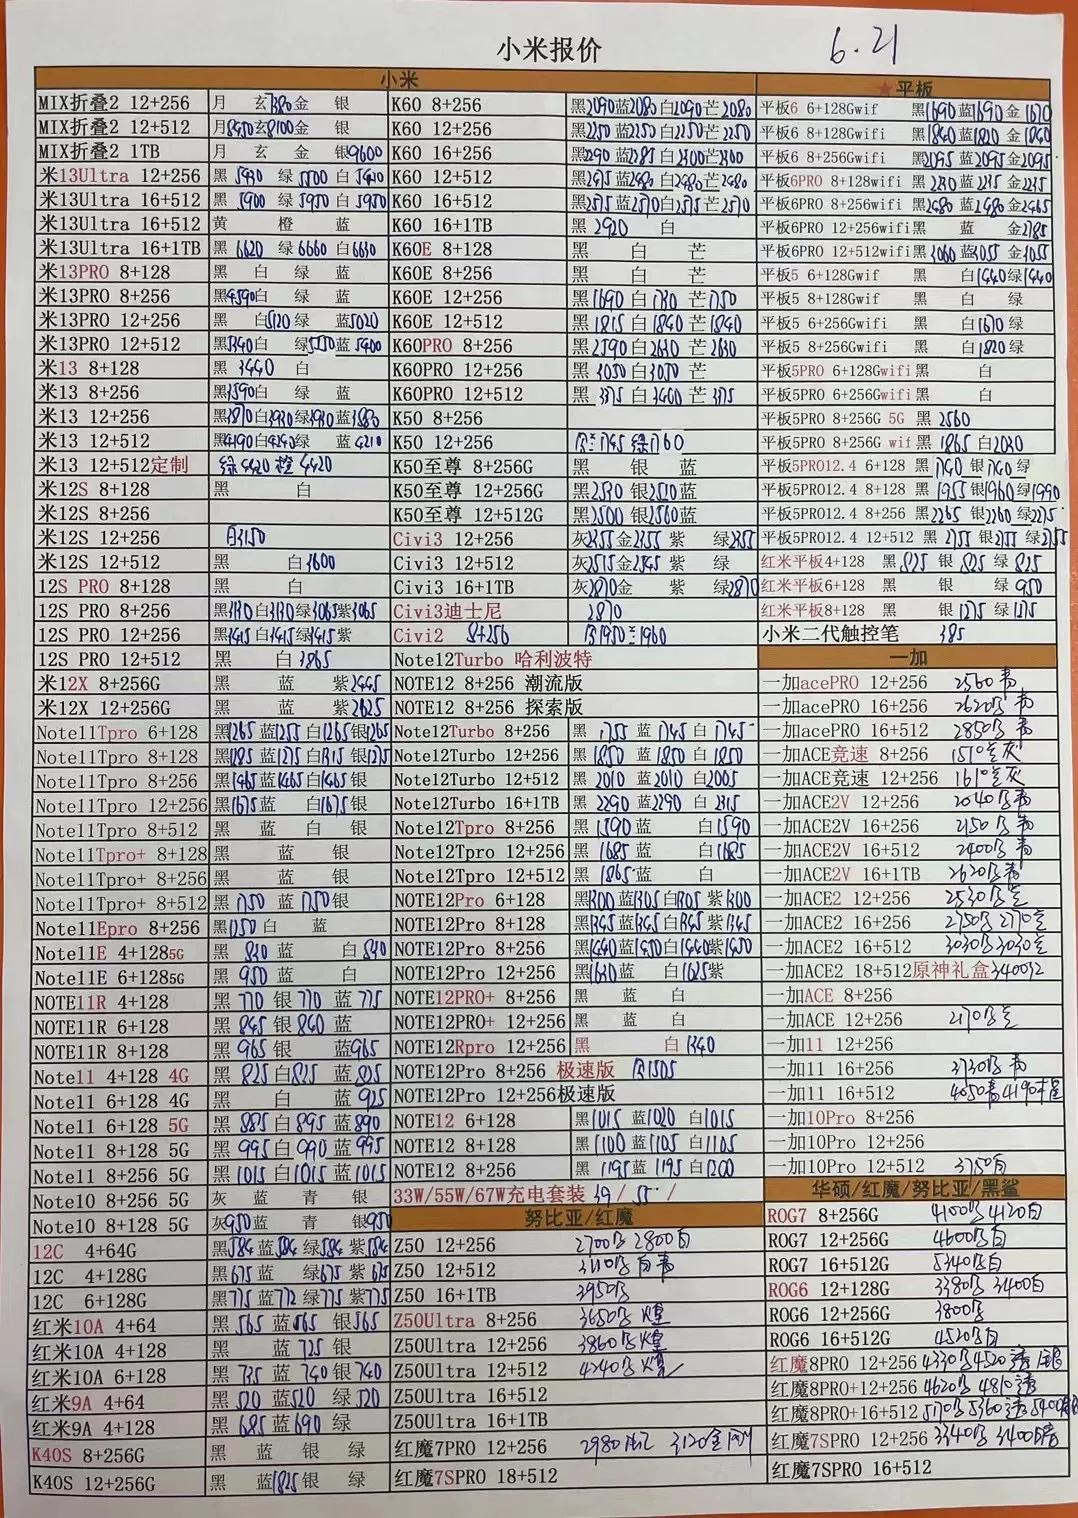 小米报价 6.21
小米
MIX折叠2 12+256 月 玄7380金 银
MIX折叠2 12+512 月8450玄8100金 银
MIX折叠2 1TB 月 玄 金 银9600
米13Ultra 12+256 黑 5430 绿 5500 白 5410
米13Ultra 16+512 黑 5900 绿 5950 白 5950
米13Ultra 16+512 黄 橙 蓝
米13Ultra 16+1TB 黑 6620 绿 6660 白 6630
米13PRO 8+128 黑 白 绿 蓝
米13PRO 8+256 黑4590白 绿 蓝
米13PRO 12+256 黑 白5120 绿 蓝5020
米13PRO 12+512 黑5340白 绿5550蓝 5400
米13 8+128 黑 3440 白
米13 8+256 黑3590白 绿 蓝
米13 12+256 黑3870白3930绿3930蓝3880
米13 12+512 黑4190白4240绿 蓝 4210
米13 12+512定制 绿 4420 橙 4420
米12S 8+128 黑 白
米12S 8+256
米12S 12+256 白3150
米12S 12+512 黑 白3600
12S PRO 8+128 黑 白
12S PRO 8+256 黑3130白3130绿3065紫3065
12S PRO 12+256 黑3415白3415绿3415紫
12S PRO 12+512 黑 白3865
米12X 8+256G 黑 蓝 紫2445
米12X 12+256G 黑 蓝 紫2625
Note11Tpro 6+128 黑1265蓝1255白1265银1265
Note11Tpro 8+128 黑1285蓝1275白1315银1275
Note11Tpro 8+256 黑1465蓝1465白1465银
Note11Tpro 12+256 黑1675蓝 白1675银
Note11Tpro 8+512 黑 蓝 白 银
Note11Tpro+ 8+128 黑 蓝 银
Note11Tpro+ 8+256 黑 蓝 银
Note11Tpro+ 8+512 黑 1750 蓝 1750银
Note11Epro 8+256 黑1150白 蓝
Note11E 4+1285G 黑 830 蓝 白 830
Note11E 6+1285G 黑 950 蓝 白
NOTE11R 4+128 黑 770 银 770 蓝 775
NOTE11R 6+128 黑 845 银 840 蓝
NOTE11R 8+128 黑 965 银 蓝965
Note11 4+128 4G 黑 825白825 蓝 825
Note11 6+128 4G 黑 白 蓝 925
Note11 6+128 5G 黑 885 白 895 蓝 890
Note11 8+128 5G 黑 995 白 990 蓝 995
Note11 8+256 5G 黑 1015 白1015 蓝1015
Note10 8+256 5G 灰 蓝 青 银
Note10 8+256 5G 灰950蓝 青 银950
12C 4+64G 黑584 蓝584 绿584 紫584
12C 4+128G 黑675 蓝 绿675 紫675
12C 6+128G 黑775 蓝772 绿775 紫775
红米10A 4+64 黑 565 蓝565 银565
红米10A 4+128 黑 蓝 725 银
红米10A 6+128 黑 735 蓝 740银740
红米9A 4+64 黑 520 蓝520 绿 520
红米9A 4+128 黑 685 蓝690 绿
K40S 8+256G 黑 蓝 银 绿
K40S 12+256G 黑 蓝1825银 绿
K60 8+256 黑2090蓝2080白2090芒2080
K60 12+256 黑2250蓝2250白2250芒2250
K60 16+256 黑2290蓝2285白2300芒2300
K60 12+512 黑2475蓝2480白2480芒2480
K60 16+512 黑2575蓝2570白2575芒2570
K60 16+1TB 黑 2920 白
K60E 8+128 黑 白 芒
K60E 8+256 黑 白 芒
K60E 12+256 黑1690 白1730 芒1750
K60E 12+512 黑1815 白1840 芒1840
K60PRO 8+256 黑2590白2630 芒2630
K60PRO 12+256 黑 3050白3050 芒
K60PRO 12+512 黑 3375白3400 芒3375
K50 8+256
K50 12+256 1745 绿1760
K50至尊 8+256G 黑 银 蓝
K50至尊 12+256G 黑2510 银2510蓝
K50至尊 12+512G 黑2500 银2560蓝
Civi3 12+256 灰2355金2355 紫 绿2355
Civi3 12+512 灰2515金2545 紫 绿
Civi3 16+1TB 灰2870金 紫 绿2870
Civi3迪士尼 2870
Civi2 8+256 白1950 1960
Note12Turbo 哈利波特
NOTE12 8+256 潮流版
NOTE12 8+256 探索版
Note12Turbo 8+256 黑 1755 蓝 1745 白 1745
Note12Turbo 12+256 黑 1850 蓝1850 白 1850
Note12Turbo 12+512 黑 2010 蓝2010 白 2005
Note12Turbo 16+1TB 黑 2290 蓝2290 白 2315
Note12Tpro 8+256 黑 1590 蓝 白1590
Note12Tpro 12+256 黑 1685 蓝 白1685
Note12Tpro 12+512 黑 1865蓝 白
NOTE12Pro 6+128 黑1300 蓝1305 白1305 紫1300
NOTE12Pro 8+128 黑1345蓝1365白1345 紫1345
NOTE12Pro 8+256 黑1440蓝1450白1440紫1450
NOTE12Pro 12+256 黑1630蓝 白1625紫
NOTE12PRO+ 8+256 黑 蓝 白
NOTE12PRO+ 12+256 黑 蓝 白
NOTE12Rpro 12+256 黑 白1340
NOTE12Pro 8+256 极速版 白1505
NOTE12Pro 12+256极速版
NOTE12 6+128 黑1015 蓝1020 白1015
NOTE12 8+128 黑1100 蓝1105 白1105
NOTE12 8+256 黑 1195 蓝 1195 白1200
33W/55W/67W充电套装 39 / 55 /
努比亚/红魔
Z50 12+256 2700 2800白
Z50 12+512 3110 白
Z50 16+1TB 3950
Z50Ultra 8+256 3650
Z50Ultra 12+256 3860
Z50Ultra 12+512 4240
Z50Ultra 16+512
Z50Ultra 16+1TB
红魔7PRO 12+256 2980 3120金
红魔7SPRO 18+512
★平板
平板6 6+128Gwif 黑1690蓝1690 金 1670
平板6 8+128Gwifi 黑1840蓝1820 金1840
平板6 8+256Gwifi 黑2095蓝2095金2095
平板6PRO 8+128wifi 黑 2230 蓝 2235 金2235
平板6PRO 8+256wifi 黑 2480 蓝 2480 金2465
平板6PRO 12+256wifi黑 蓝 金2785
平板6PRO 12+512wifi黑3060 蓝3055 金3055
平板5 6+128Gwif 黑 白1440绿1440
平板5 8+128Gwif 黑 白 绿
平板5 6+256Gwifi 黑 白1670绿
平板5 8+256Gwifi 黑 白1820绿
平板5PRO 6+128Gwifi黑 白
平板5PRO 6+256Gwifi黑 白
平板5PRO 8+256G 5G 黑 2560
平板5PRO 8+256G wif 黑 1865 白2030
平板5PRO12.4 6+128 黑 1740 银1740 绿
平板5PRO12.4 8+128 黑 1955 银1960绿1990
平板5PRO12.4 8+256 黑2265 银2260 绿2275
平板5PRO12.4 12+512 黑 2755 银2755 绿2755
红米平板4+128 黑825 银 825 绿 825
红米平板6+128 黑 银 绿 950
红米平板8+128 黑 银1275 绿1275
小米二代触控笔 385
一加
一加acePRO 12+256 2560青
一加acePRO 16+256 2620 青
一加acePRO 16+512 2850 青
一加ACE竞速 8+256 1510 灰
一加ACE竞速 12+256 1610 灰
一加ACE2V 12+256 2040 青
一加ACE2V 16+256 2150 青
一加ACE2V 16+512 2400 青
一加ACE2V 16+1TB 2620 青
一加ACE2 12+256 2530
一加ACE2 16+256 2750 2770
一加ACE2 16+512 3030 3030
一加ACE2 18+512原神礼盒3400
一加ACE 8+256
一加ACE 12+256 2170
一加11 12+256
一加11 16+256 3730 青
一加11 16+512 4050青4190
一加10Pro 8+256
一加10Pro 12+256
一加10Pro 12+512 3750
华硕/红魔/努比亚/黑鲨
ROG7 8+256G 4100 4120白
ROG7 12+256G 4600 白
ROG7 16+512G 5340 白
ROG6 12+128G 3380 3400白
ROG6 12+256G 3800
ROG6 16+512G 4520 白
红魔8PRO 12+256 4330 4520透
红魔8PRO+12+256 4620 4810透
红魔8PRO+16+512 5170 5360透5400
红魔7SPRO 12+256 3340 3400
红魔7SPRO 16+512